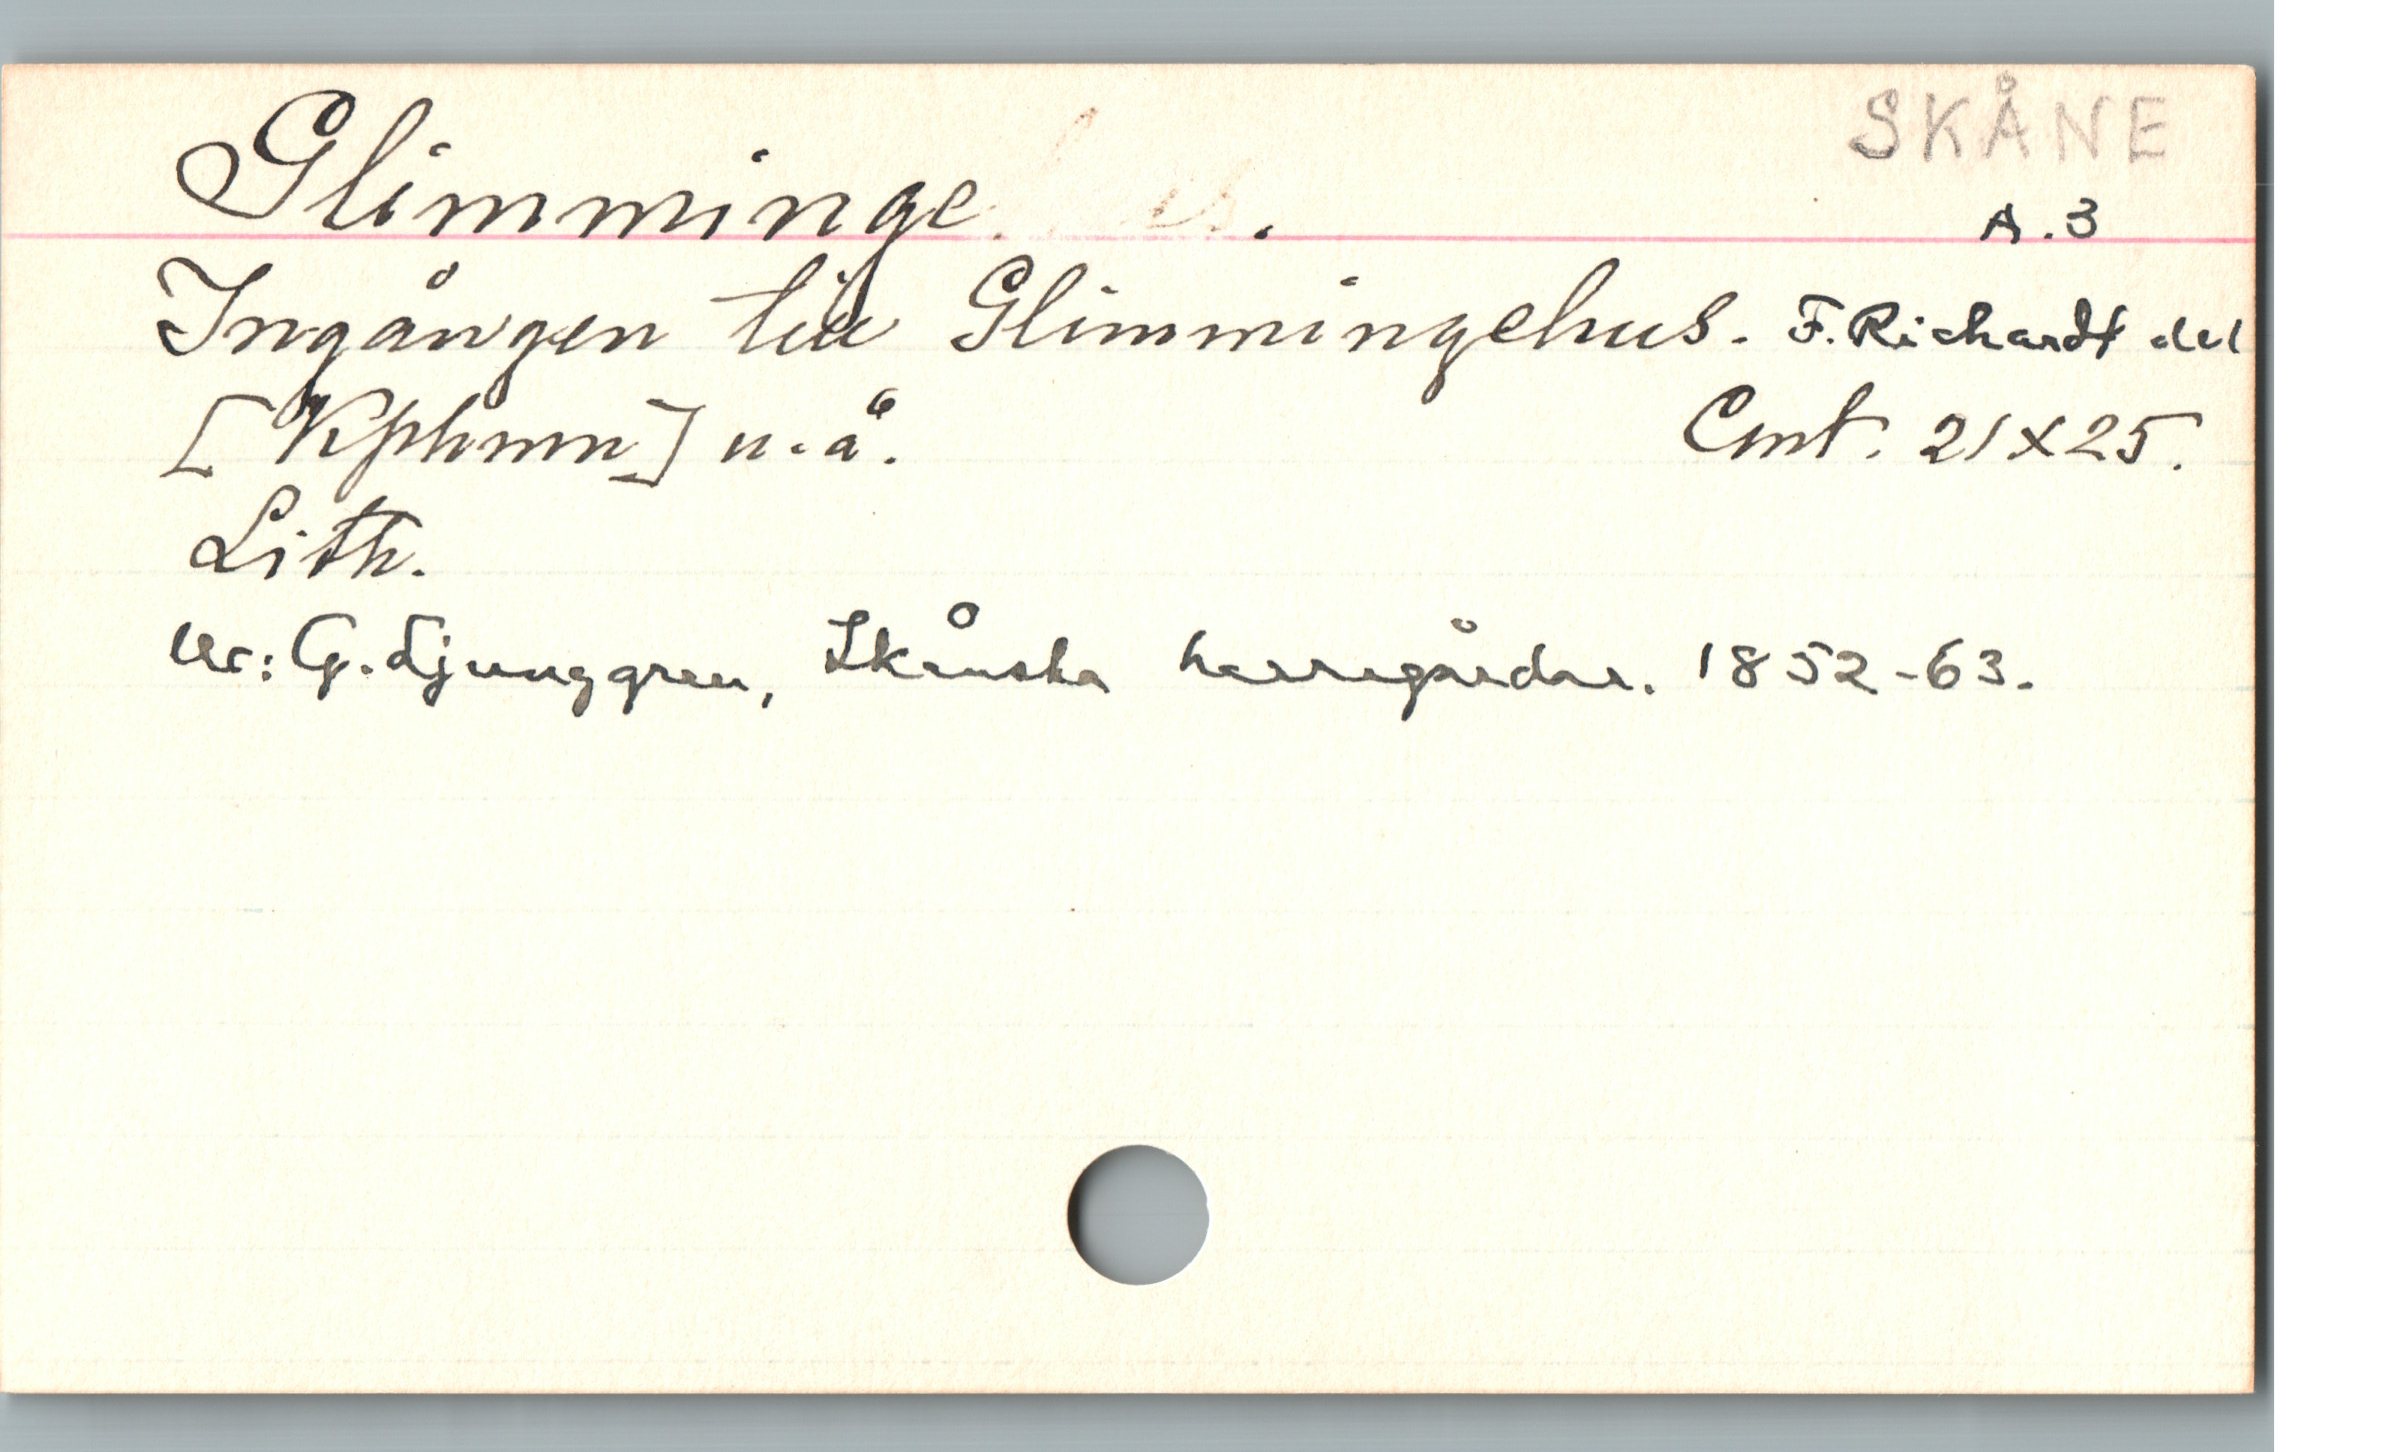 SKÅNE
Glimminge.
A.3
Ingången till Glimmingehus. F. Richardt del
[Kphmn] u. å. Cmt. 21X25.
Lith.
Ur: G. Ljunggren, Skånska herregårdar. 1852-63.